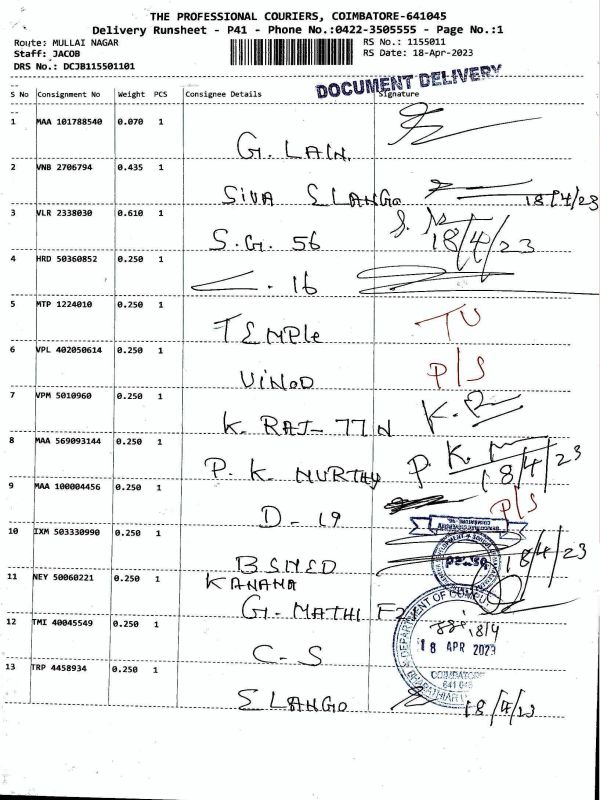 THE PROFESSIONAL COURIERS, COIMBATORE-641045
Delivery Runsheet - P41 - Phone No.:0422-3505555 - Page No.:1
Route: MULLAI NAGAR
RS No.: 1155011
Staff: JACOB
RS Date: 18-Apr-2023
DRS No.: DCJB115501101
DOCUMENT DELIVERY
S No Consignment No Weight PCS Consignee Details Signature
1 MAA 101788540 0.070 1
G. LAIN.
2 VNB 2706794 0.435 1
SIVA ELANGO 18/4/23
3 VLR 2338030 0.610 1
S.G. 56 18/4/23
4 HRD 50360852 0.250 1
16
5 MTP 1224010 0.250 1
TEMPLe
6 VPL 402050614 0.250 1
VINOD P/S
7 VPM 5010960 0.250 1
K. RAJ- 77 N
8 MAA 569093144 0.250 1
P. K. MURTHY P. K. 18/4/23
9 MAA 100004456 0.250 1
D - 19 P/S
10 IXM 503330990 0.250 1
BSMED 18/4/23
11 NEY 50060221 0.250 1
KANAMA
G. MATHI F2
12 TMI 40045549 0.250 1
C - S
18/4
18 APR 2023
13 TRP 4458934 0.250 1
DEPARTMENT OF
COIMBATORE
641 046
ELANGO 18/4/23